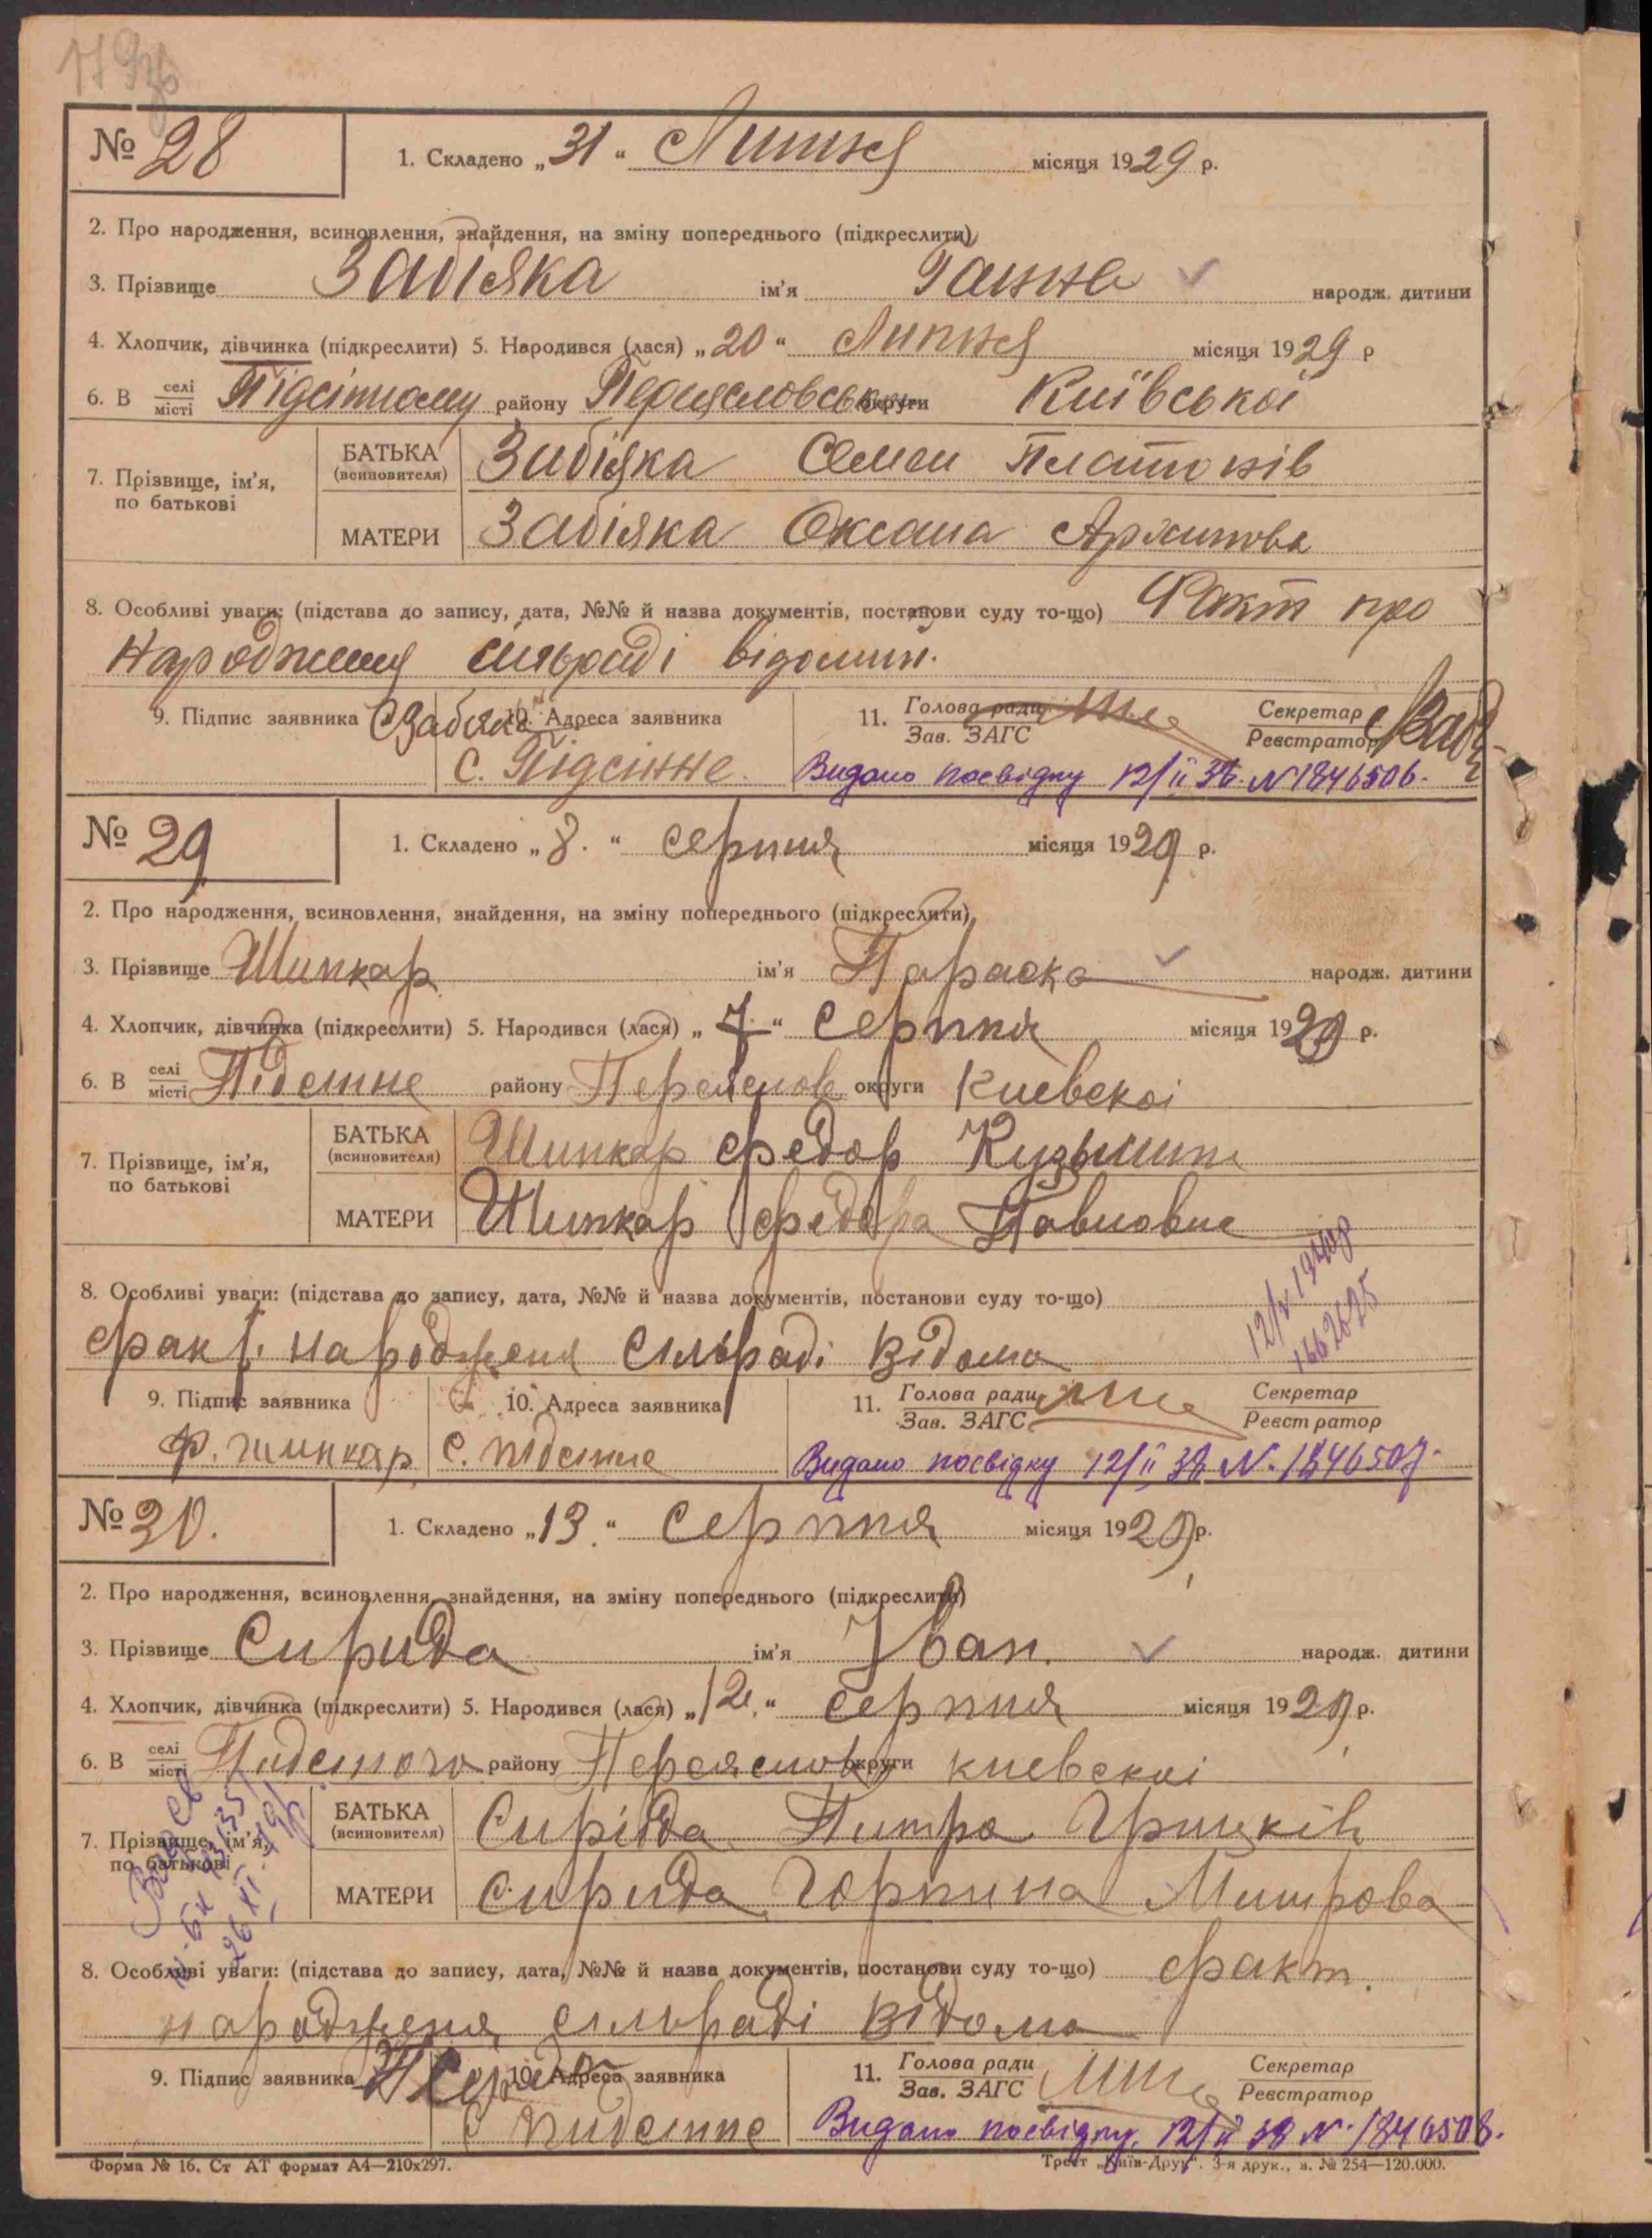 № 28
1. Складено „31“ Липня місяця 1929 р.
2. Про народження, всиновлення, знайдення, на зміну попереднього (підкреслити)
3. Прізвище Забіяка ім'я Ганна народж. дитини
4. Хлопчик, дівчинка (підкреслити) 5. Народився (лася) „20“ Липня місяця 1929 р
6. В селі місті Підсінному району Переяславської округи Київської
7. Прізвище, ім'я, по батькові
БАТЬКА (всиновителя) Забіяка Семен Платонів
МАТЕРИ Забіяка Оксана Архипова
8. Особливі уваги: (підстава до запису, дата, №№ й назва документів, постанови суду то-що) Факт про
народження сільраді відомий.
9. Підпис заявника С Забіяка 10. Адреса заявника 11. Голова ради Зав. ЗАГС Секретар Реєстратор
с. Підсінне. Видано посвідку 12/II 38. N 1846506.
№ 29
1. Складено „8.“ серпня місяця 1929 р.
2. Про народження, всиновлення, знайдення, на зміну попереднього (підкреслити)
3. Прізвище Шинкар ім'я Параска народж. дитини
4. Хлопчик, дівчинка (підкреслити) 5. Народився (лася) „7“ Серпня місяця 1929 р.
6. В селі місті Підсінне району Переяслов округи Киевскоі
7. Прізвище, ім'я, по батькові
БАТЬКА (всиновителя) Шинкар Федор
МАТЕРИ Шинкар Федора Павловна
8. Особливі уваги: (підстава до запису, дата, №№ й назва документів, постанови суду то-що)
12/V 1940р
1662625
факт. народженя сільраді відомо
9. Підпис заявника 10. Адреса заявника 11. Голова ради Зав. ЗАГС Секретар Реєстратор
Ф. Шинкар с. підсінне Видано посвідку 12/II 38 N. 1846507.
№ 30.
1. Складено „13.“ Серпня місяця 1929 р.
2. Про народження, всиновлення, знайдення, на зміну попереднього (підкреслити)
3. Прізвище Сирида ім'я Іван. народж. дитини
4. Хлопчик, дівчинка (підкреслити) 5. Народився (лася) „12.“ Серпня місяця 1929 р.
6. В селі місті Пидсіного району Переяслов округи киевскоі
7. Прізвище, ім'я, по батькові
БАТЬКА (всиновителя) Сиріда Питро Грицків
МАТЕРИ Сирида Горпина Митрова
8. Особливі уваги: (підстава до запису, дата, №№ й назва документів, постанови суду то-що) факт.
народженя сільраді відомо
9. Підпис заявника 10. Адреса заявника 11. Голова ради Зав. ЗАГС Секретар Реєстратор
с пидсінне Видано посвідку. 12/II 38 N. 1846508.
Форма № 16. Ст АТ формат А4—210х297. Трест „Київ-Друк“. 3-я друк., з. № 254—120.000.